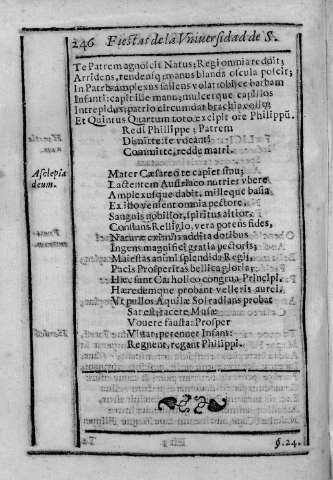 246 Fiestas de la Vniversidad de S.
Te Patrem agnoscit Natus; Regi omnia reddit;
Arridens, tendensq; manus blanda oscula poscit;
In Patris amplexus saliens volat: obijce barbam
Infanti: capit ille manu; mulcetque capillos
Intrepidus; patrio circumdat brachia collo;
Et Quintus Quartum toto excipit ore Philippũ.
Redi Philippe; Patrem
Dimitte: te vocanti
Committe, redde matri.
Asclepia
deum.
Mater Cæsareo te capiet sinu;
Lactentem Austriaco nutriet vbere
Amplexusque dabit, milleque basia
Ex isto venient omnia pectore.
Sanguis nobilior, spiritus altior.
Constans Relligio, vera potens fides,
Naturæ eximijs addita dotibus
Ingens magnifici gratia pectoris;
Maiestas animi splendida Regij,
Pacis Prosperitas bellica gloria;
Hæc sunt Catholico congrua Principi,
Hæredemque probant velleris aurei,
Vt pullos Aquilæ Sol radians probat
Sat est; tacete Musæ
Vovete fausta: Prosper
Vivat; perennet Infans:
Regnent, regant Philippi.
§. 24.